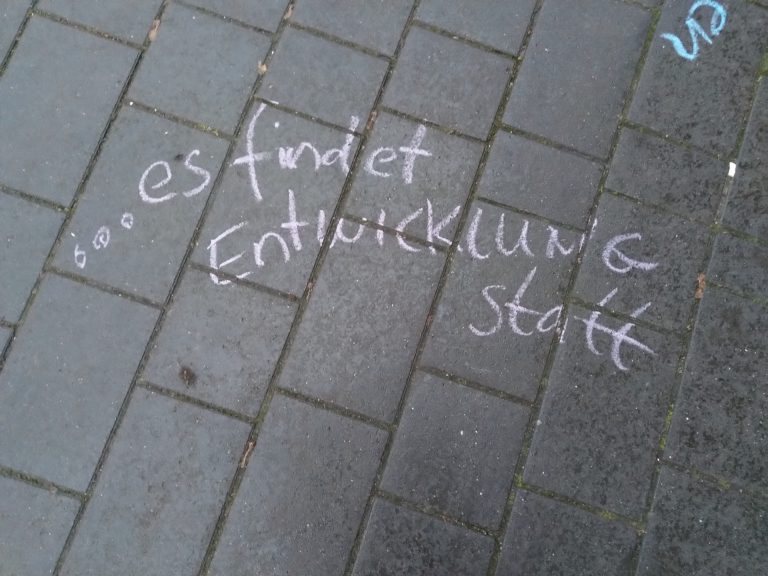 ...es findet
Entwicklung
statt